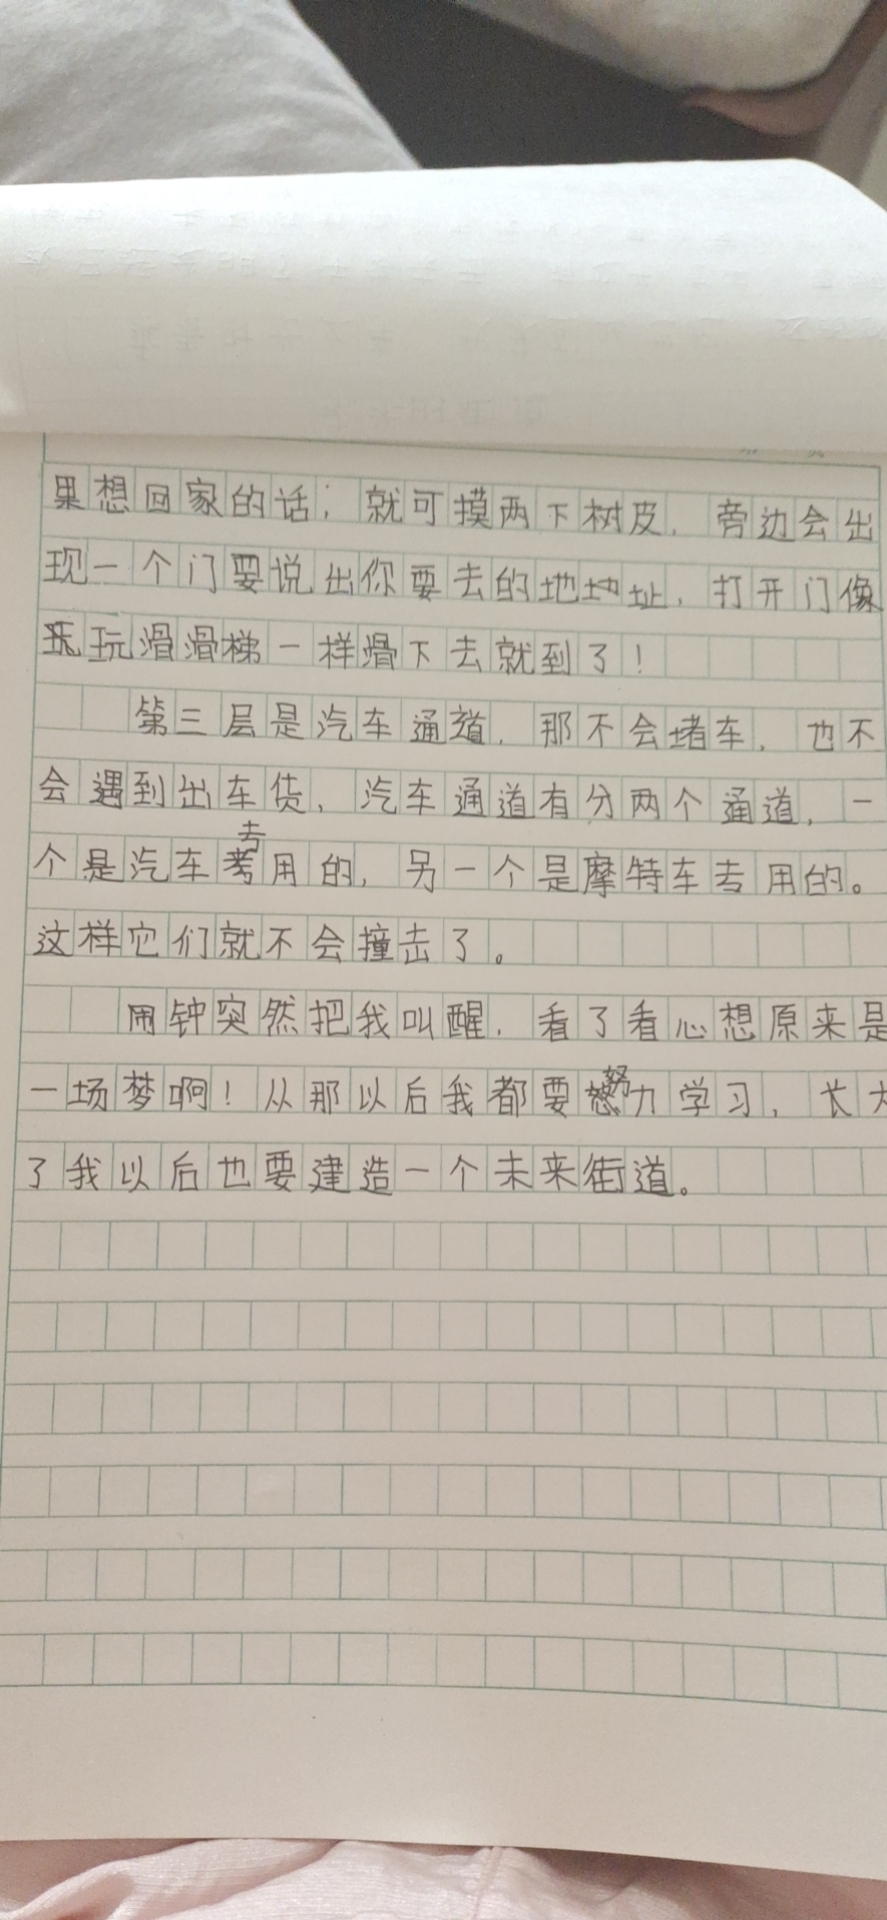 果想回家的话，就可摸两下树皮，旁边会出
现一个门要说出你要去的地地址，打开门像
玩玩滑滑梯一样滑下去就到了！
第三层是汽车通道，那不会堵车，也不
会遇到出车货，汽车通道有分两个通道，一
个是汽车专用的，另一个是摩特车专用的。
这样它们就不会撞击了。
闹钟突然把我叫醒，看了看心想原来是
一场梦啊！从那以后我都要努力学习，长大
了我以后也要建造一个未来街道。